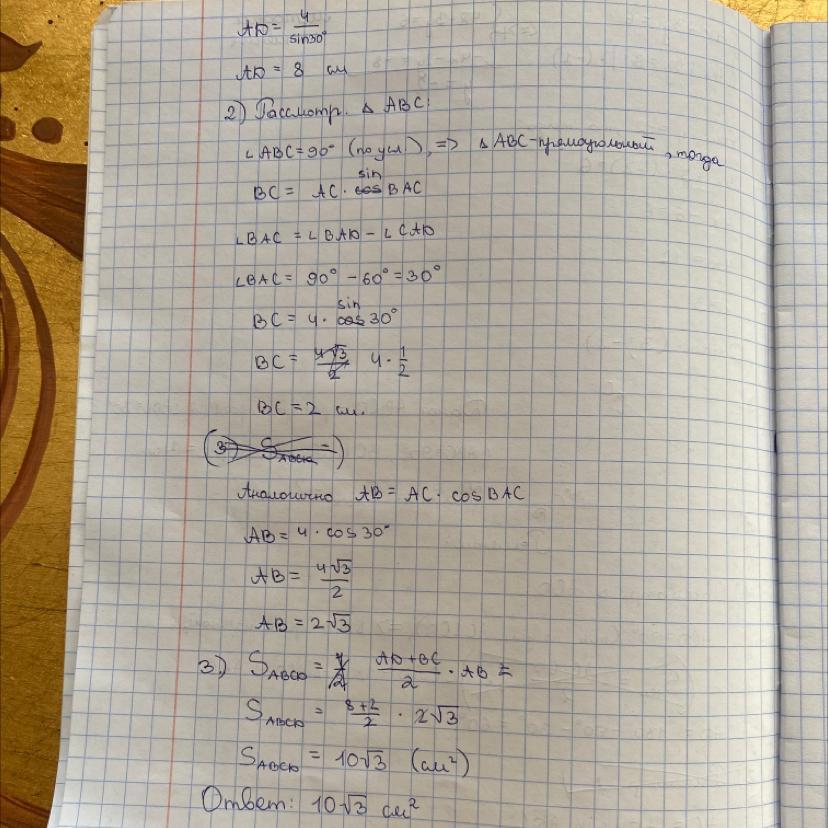 AD = 4/sin30°
AD = 8 см
2) Рассмотр. △ ABC:
∠ABC = 90° (по усл), => △ ABC - прямоугольный, тогда
BC = AC · sin BAC
∠BAC = ∠BAD - ∠CAD
∠BAC = 90° - 60° = 30°
BC = 4 · sin 30°
BC = 4 · 1/2
BC = 2 см.
Аналогично AB = AC · cos BAC
AB = 4 · cos 30°
AB = 4√3/2
AB = 2√3
3.) S_ABCD = (AD + BC)/2 · AB =
S_ABCD = (8+2)/2 · 2√3
S_ABCD = 10√3 (см²)
Ответ: 10√3 см²